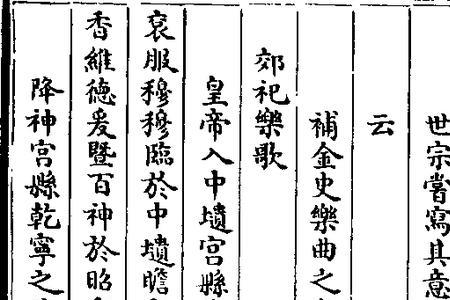 世宗嘗寫其意
云
補金史樂曲之
郊祀樂歌
皇帝入中壝宮縣
袞服穆穆臨於中壝瞻
香維德爰暨百神於昭
降神宮縣乾寧之